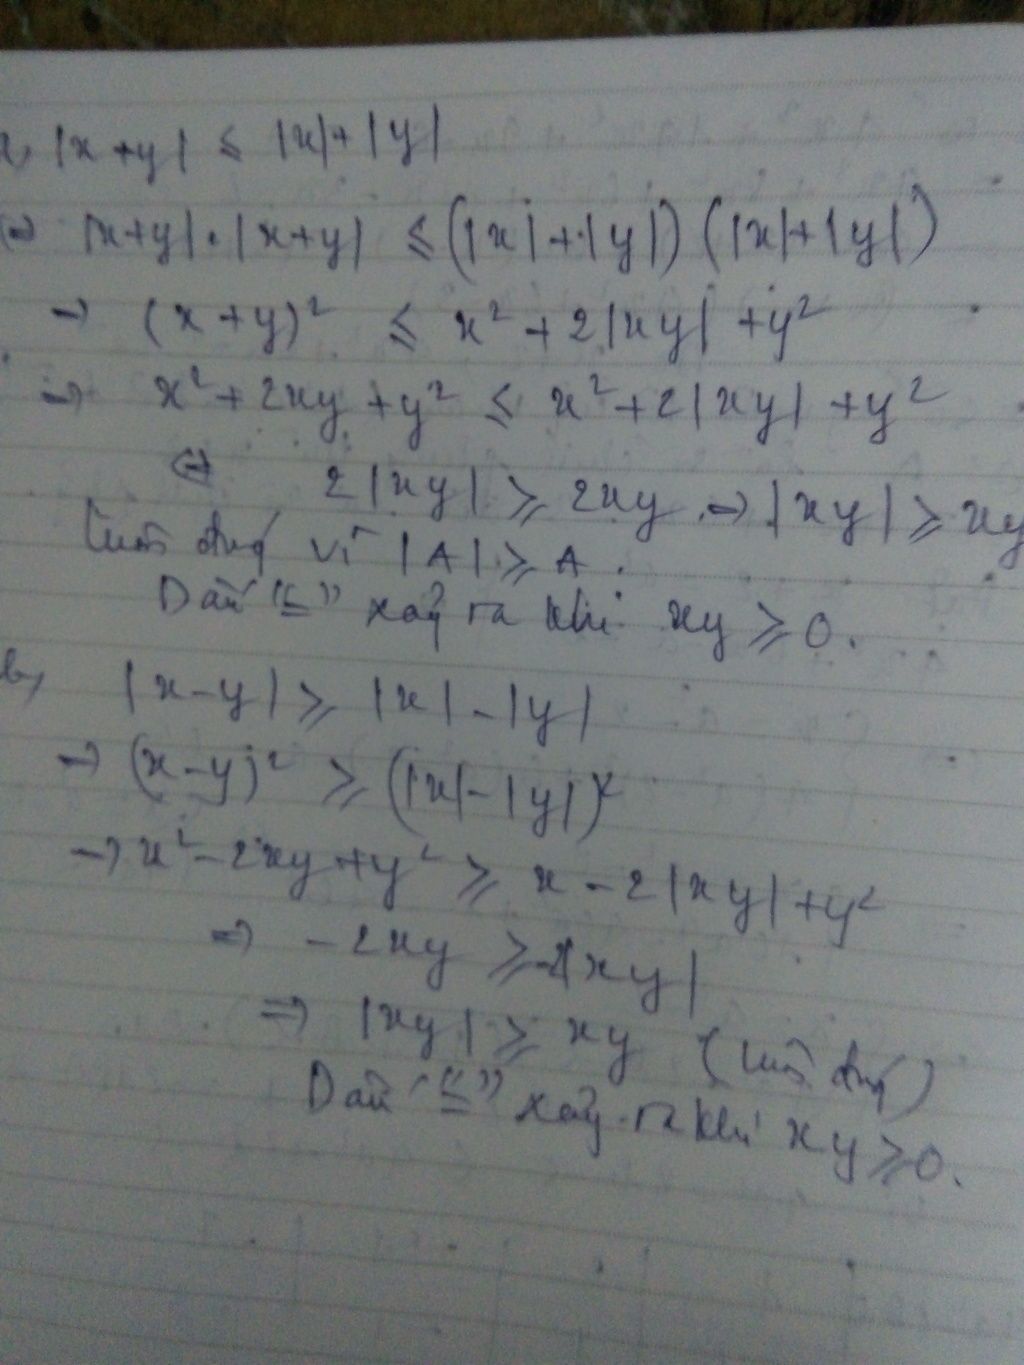 a, |x+y| ≤ |x|+|y|
⇔ |x+y|.|x+y| ≤ (|x|+|y|)(|x|+|y|)
→ (x+y)² ≤ x²+2|xy|+y²
→ x²+2xy+y² ≤ x²+2|xy|+y²
⇔ 2|xy| ≥ 2xy → |xy| ≥ xy
Luôn đúng vì |A| ≥ A.
Dấu "=" xảy ra khi xy ≥ 0.
b, |x-y| ≥ |x|-|y|
→ (x-y)² ≥ (|x|-|y|)²
→ x²-2xy+y² ≥ x-2|xy|+y²
⇒ -2xy ≥ -2|xy|
⇒ |xy| ≥ xy (luôn đúng)
Dấu "=" xảy ra khi xy ≥ 0.